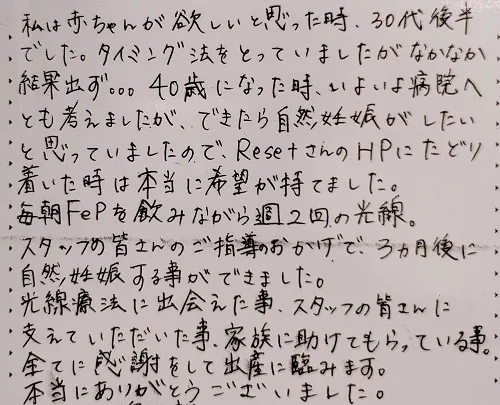 私は赤ちゃんが欲しいと思った時、30代後半
でした。タイミング法をとっていましたがなかなか
結果出ず... 40歳になった時、いよいよ病院へ
とも考えましたが、できたら自然妊娠がしたい
と思っていましたので、ResetさんのHPにたどり
着いた時は本当に希望が持てました。
毎朝FePを飲みながら週2回の光線。
スタッフの皆さんのご指導のおかげで、3ヵ月後に
自然妊娠する事ができました。
光線療法に出会えた事、スタッフの皆さんに
支えていただいた事、家族に助けてもらっている事。
全てに感謝をして出産に臨みます。
本当にありがとうございました。